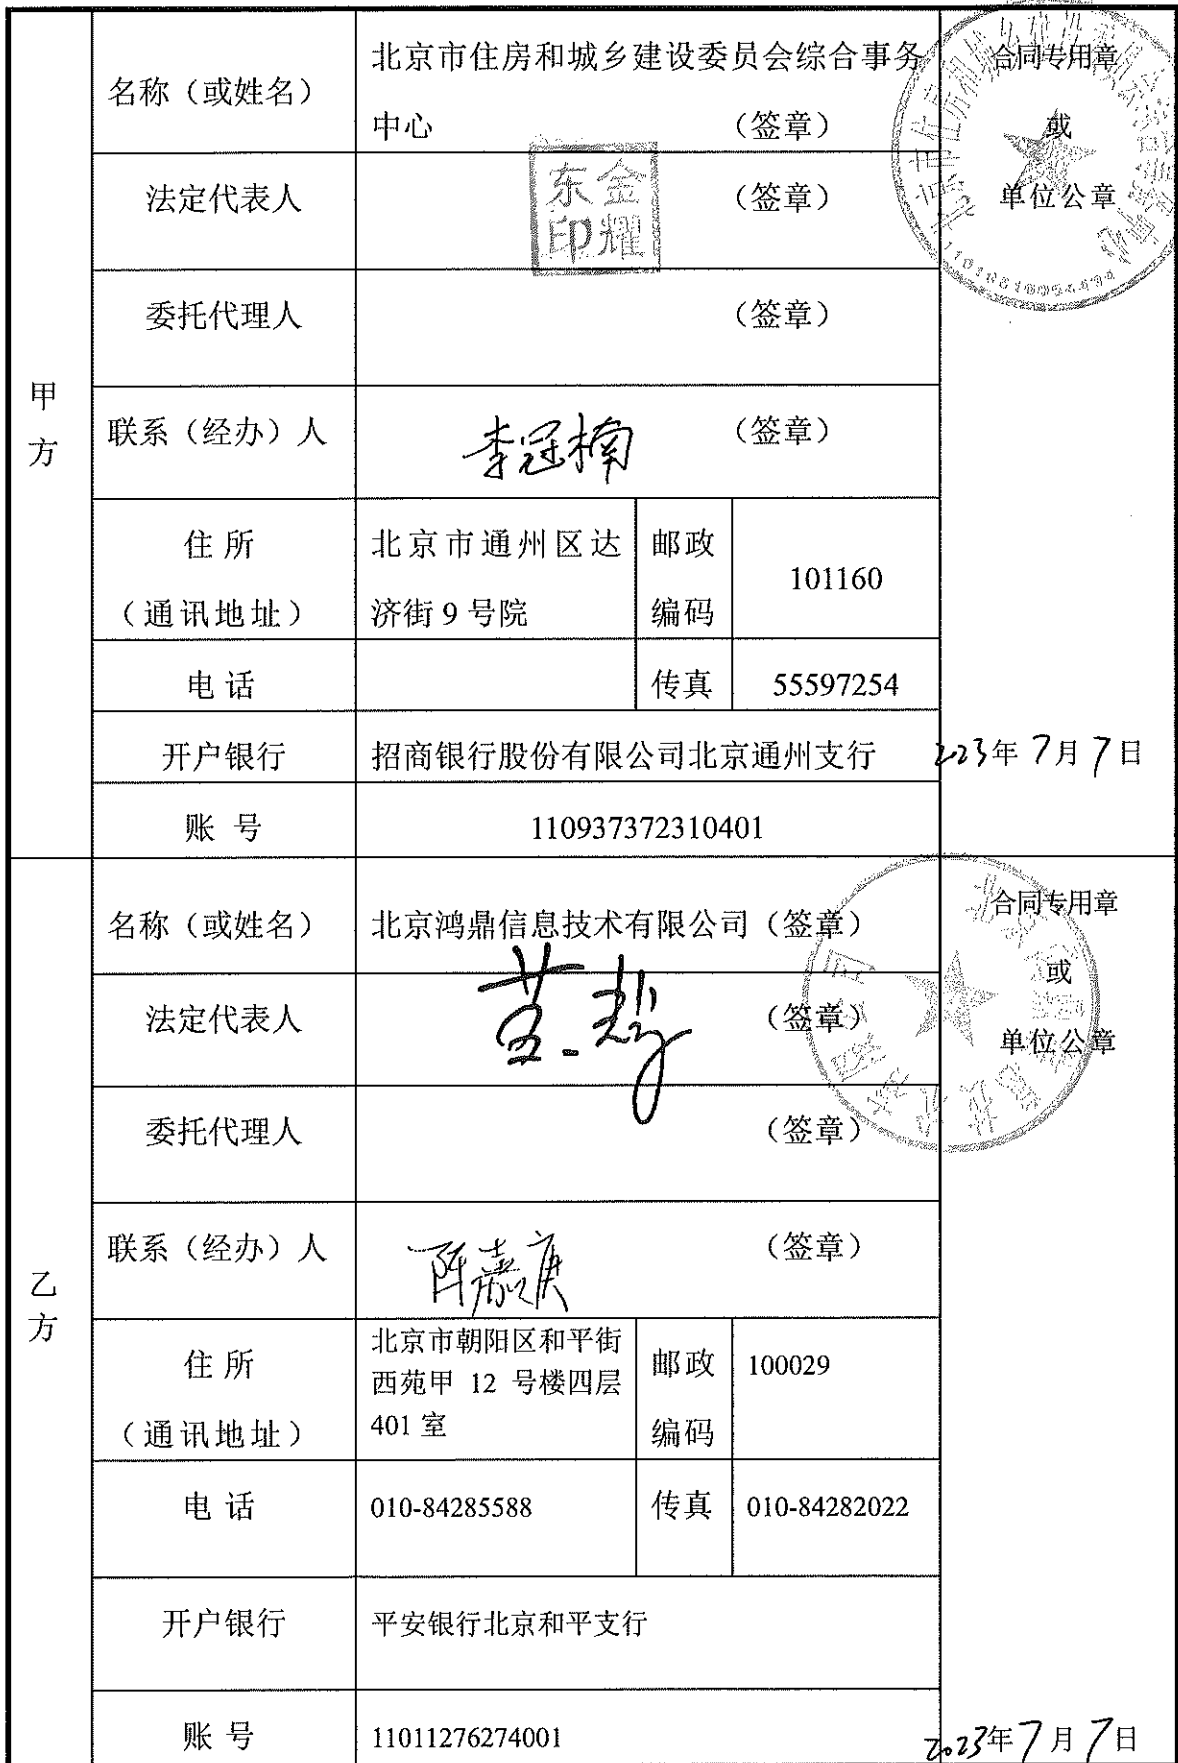 甲方
名称（或姓名）
北京市住房和城乡建设委员会综合事务
中心 （签章）
法定代表人
东金
印耀
（签章）
委托代理人
（签章）
联系（经办）人
李冠楠
（签章）
住 所
（通讯地址）
北京市通州区达
济街 9 号院
邮政
编码
101160
电 话
传真
55597254
开户银行
招商银行股份有限公司北京通州支行
账 号
110937372310401
合同专用章
或
单位公章
2023年7月7日
乙方
名称（或姓名）
北京鸿鼎信息技术有限公司（签章）
法定代表人
（签章）
委托代理人
（签章）
联系（经办）人
（签章）
住 所
（通讯地址）
北京市朝阳区和平街
西苑甲 12 号楼四层
401 室
邮政
编码
100029
电 话
010-84285588
传真
010-84282022
开户银行
平安银行北京和平支行
账 号
11011276274001
合同专用章
或
单位公章
2023年7月7日